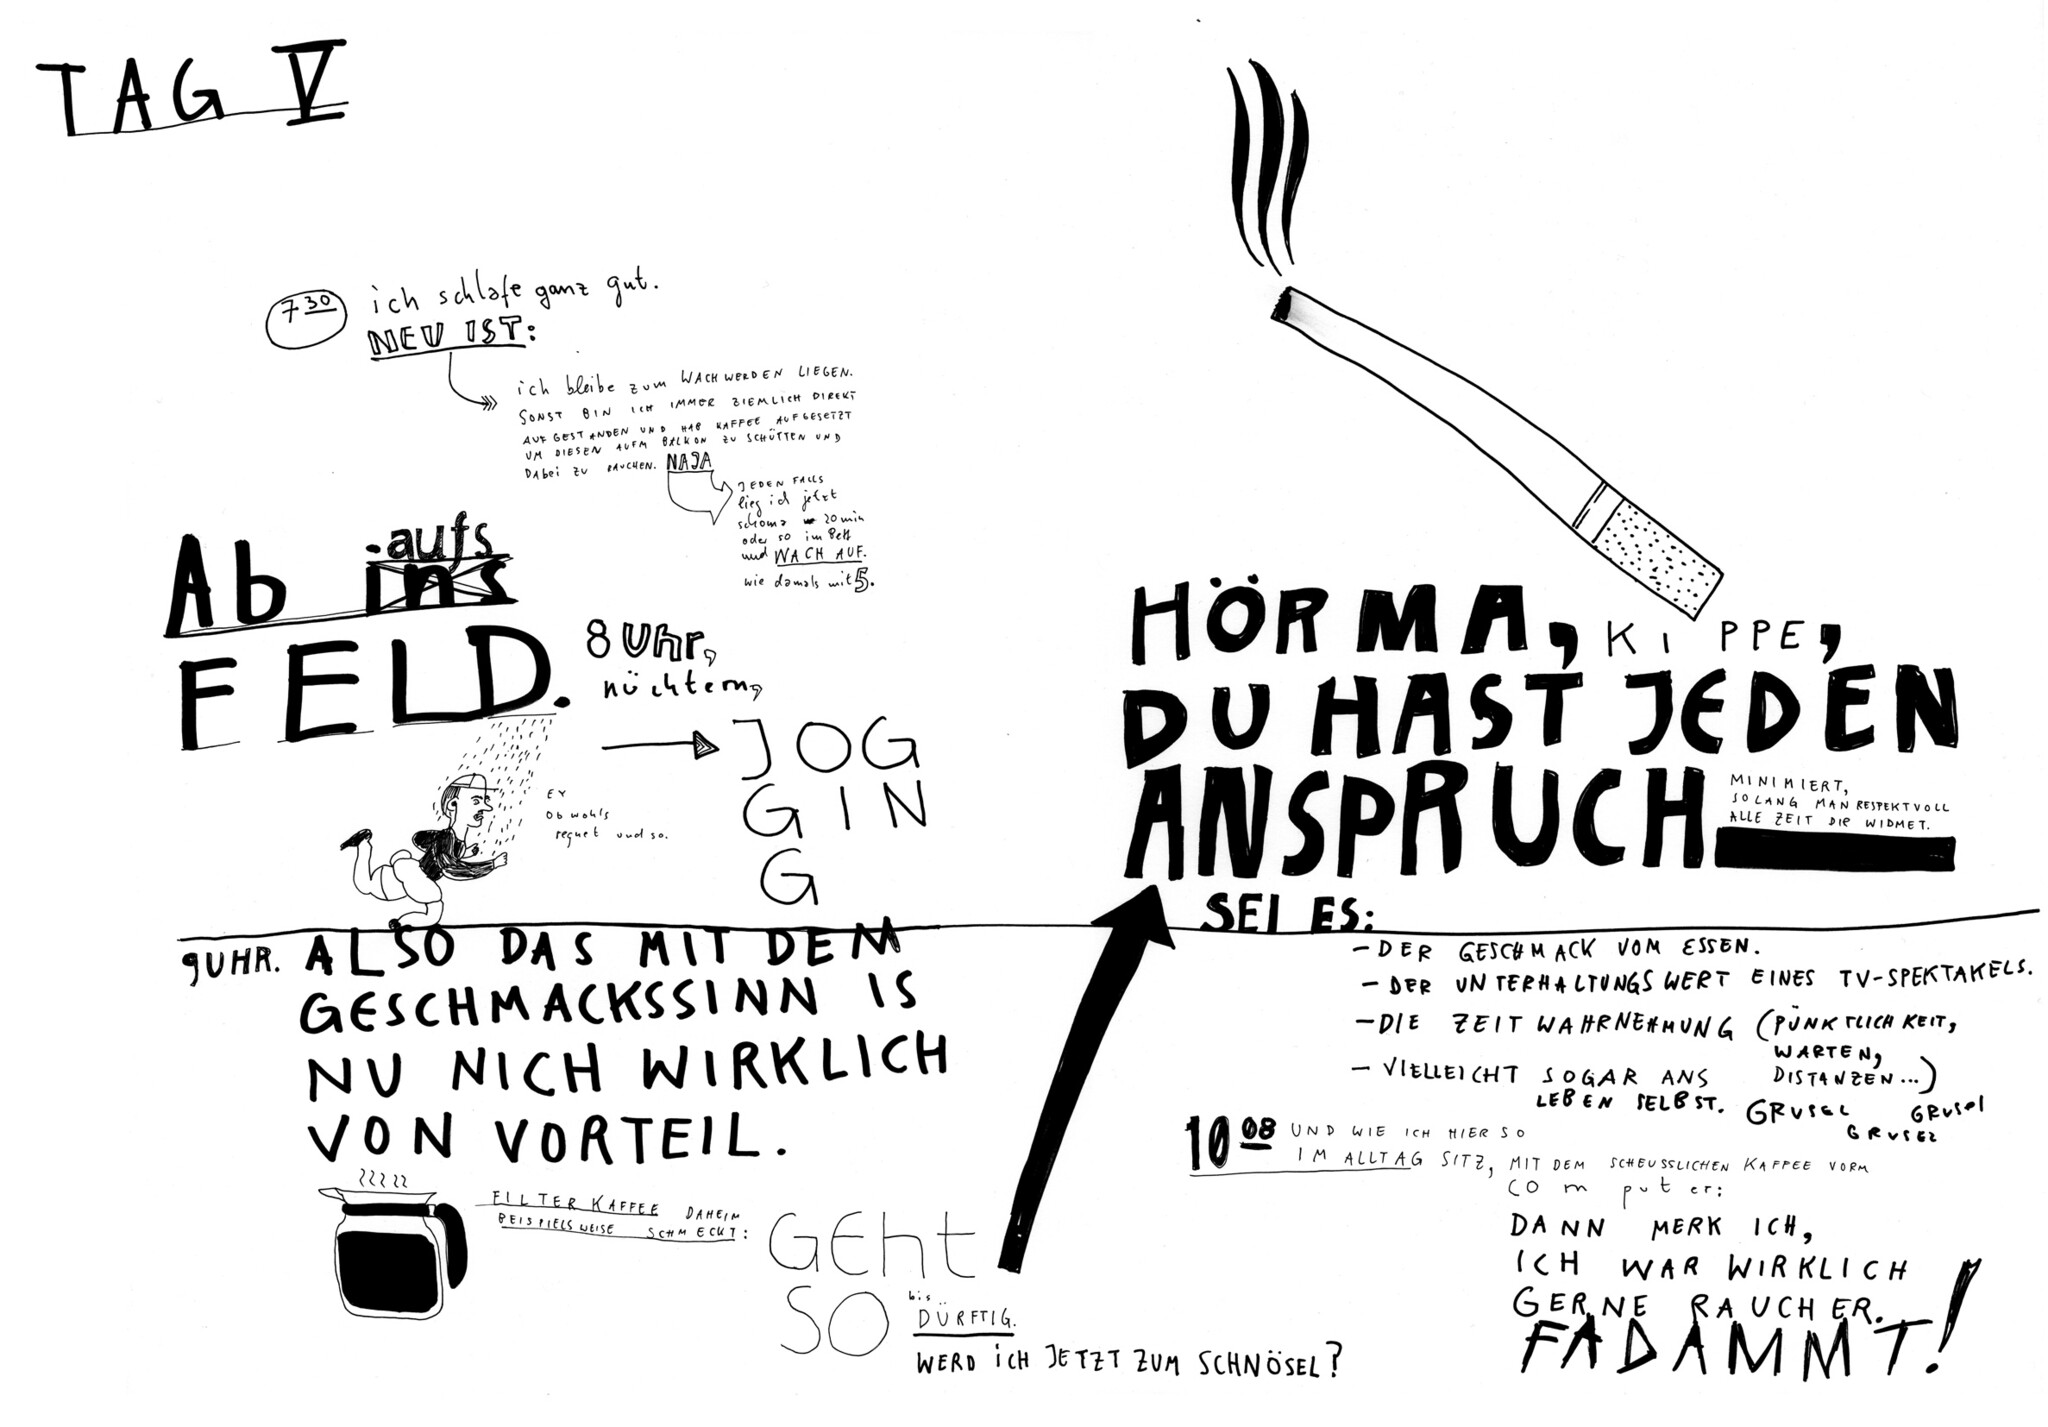 TAG V
7 30
ich schlafe ganz gut.
NEU IST:
ich bleibe zum WACHWERDEN LIEGEN.
SONST BIN ICH IMMER ZIEMLICH DIREKT
AUFGESTANDEN UND HAB KAFFEE AUFGESETZT
UM DIESEN AUFM BALKON ZU SCHÜTTEN UND
DABei ZU RAUCHEN. NAJA
JEDEN FALLS
lieg ich jetzt
schoma 20 min
oder so im Bett
und WACH AUF.
wie damals mit 5.
Ab ins aufs
FELD.
8 Uhr,
nüchtern,
JOG
GIN
G
EY
Obwohls
regnet und so.
9 UHR. ALSO DAS MIT DEM
GESCHMACKSSINN IS
NU NICH WIRKLICH
VON VORTEIL.
FILTERKAFFEE DAHEIM
BEISPIELSWEISE SCHMECKT:
GEht
SO
bis
DÜRFTIG.
WERD iCH JETZT ZUM SCHNÖSEL?
HÖRMA, KIPPE,
DU HAST JEDEN
ANSPRUCH
MINIMIERT,
SOLANG MAN RESPEKTVOLL
ALLE ZEIT DIR WIDMET.
SEI ES:
– DER GESCHMACK VOM ESSEN.
– DER UNTERHALTUNGSWERT EINES TV-SPEKTAKELS.
– DIE ZEITWAHRNEHMUNG (PÜNKTLICHKEIT,
WARTEN,
DISTANZEN...)
– VIELLEICHT SOGAR ANS
LEBEN SELBST. GRUSEL GRUSEL
GRUSEL
10 08 UND WIE ICH HIER SO
IM ALLTAG SITZ, MIT DEM SCHEUSSLICHEN KAFFEE VORM
COmputer:
DANN MERK ICH,
ICH WAR WIRKLICH
GERNE RAUCHER.
FADAMMT!